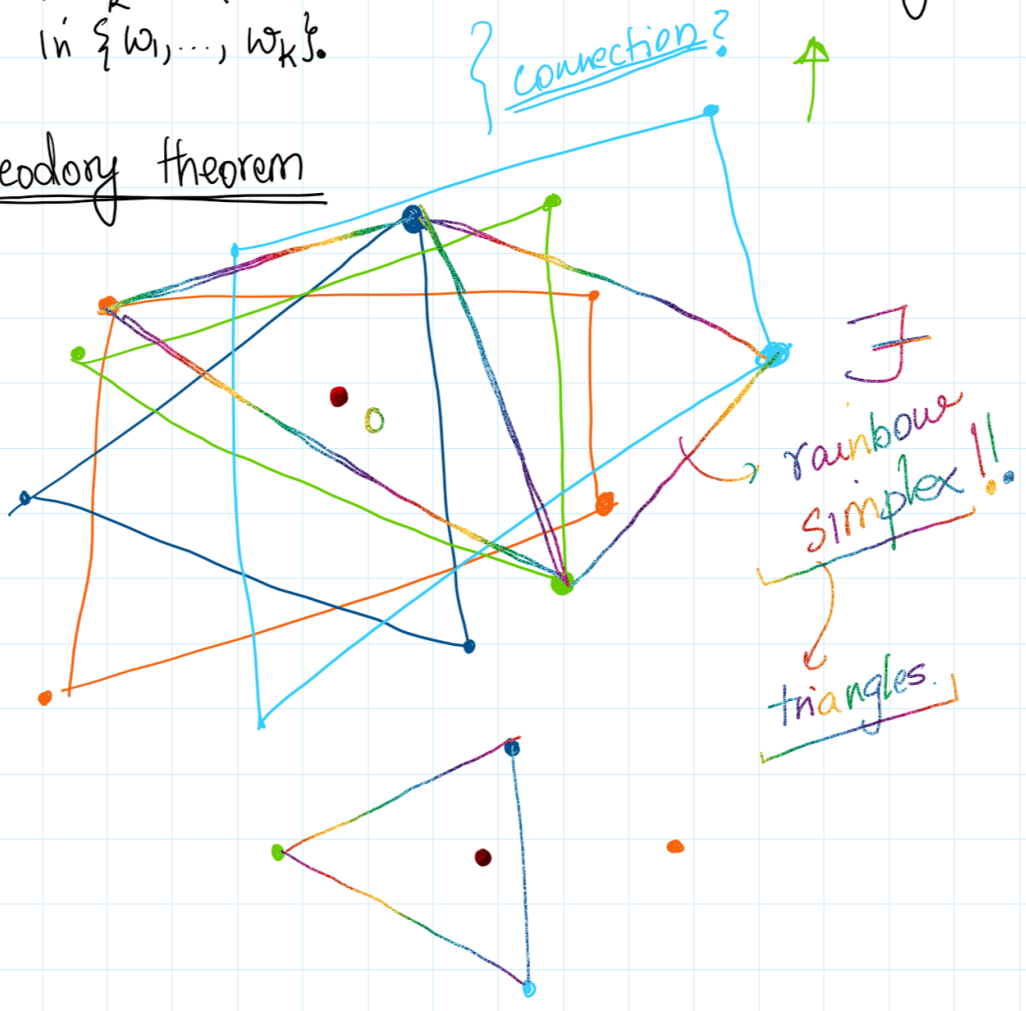 in {ω₁, ..., ω_K}.
{ connection?
eodory theorem
0
∃
rainbow
simplex!!
triangles.